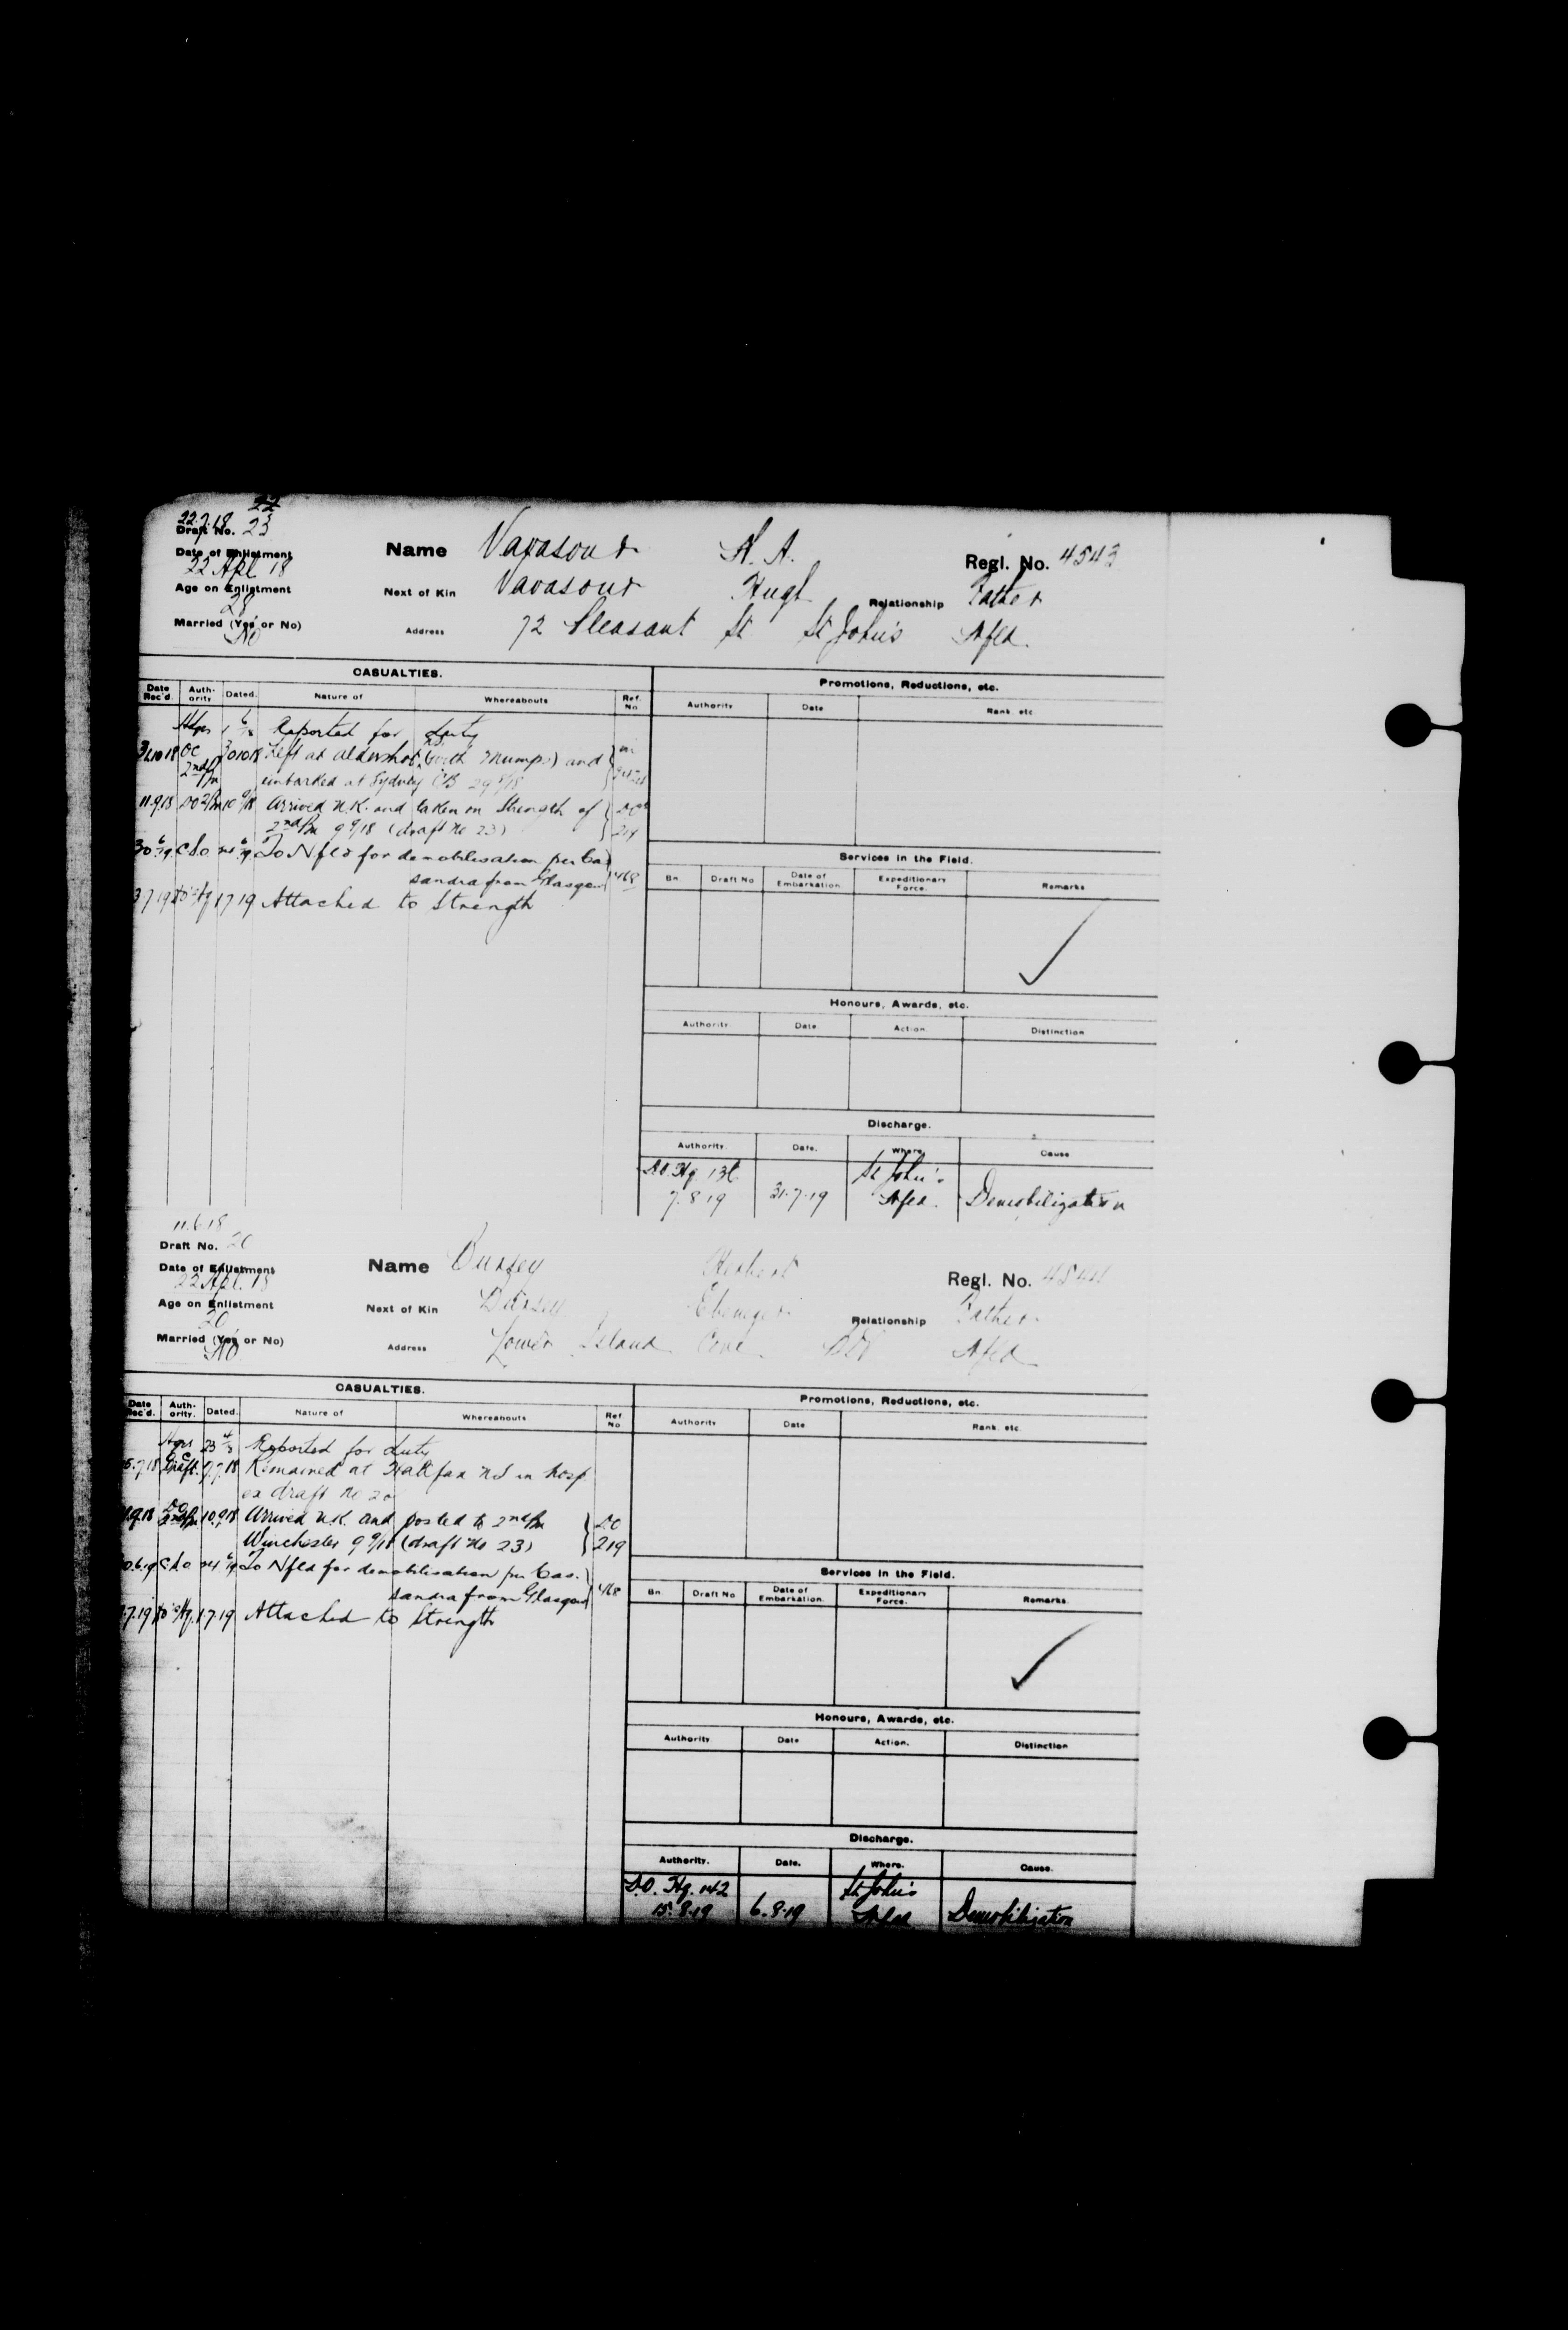 22
22.7.18
Draft No. 23
Date of Enlistment
22 Apl 18
Age on Enlistment
28
Married (Yes or No)
No
Name Vavasour H. A. Regl. No. 4543
Next of Kin Vavasour Hugh Relationship Father
Address 72 Pleasant St St John's Nfld.
CASUALTIES.
Date Rec'd. Authority Dated. Nature of Whereabouts Ref. No
Reported for duty
OC 2nd Bn Left at Aldershot (with mumps) and
embarked at Sydney CB 29 8/18
11.9.18 DO 2/Bn 10 9/18 Arrived U.K. and taken on Strength of
2nd Bn 9 9/18 (draft No 23) 219
30 6/19 C.L.O. 24 6/19 To Nfld for demobilisation per Cas
sandra from Glasgow 468
3 7 19 1 7 19 Attached to Strength
Promotions, Reductions, etc.
Authority Date Rank, etc
Services in the Field.
Bn. Draft No Date of Embarkation Expeditionary Force. Remarks
Honours, Awards, etc.
Authority. Date Action. Distinction
Discharge.
Authority. Date. Where. Cause
D.O. Hq. 136 St John's
7.8.19 31.7.19 Nfld. Demobilization
11.6.18
Draft No. 20
Date of Enlistment
22 Apl. 18
Age on Enlistment
20
Married (Yes or No)
No
Name Bursey Herbert Regl. No. 4544
Next of Kin Bursey Ebenezer Relationship Father
Address Lower Island Cove BDV Nfld
CASUALTIES.
Date Rec'd. Authority. Dated. Nature of Whereabouts Ref No
Reported for duty
Draft. 9.7.18 Remained at Halifax NS in hosp
ex draft No 20
10.9.18 Arrived U.K. and posted to 2nd Bn DO
Winchester 9 9/18 (draft No 23) 219
C.L.O. 24 6/19 To Nfld for demobilisation per Cas.
sandra from Glasgow 468
1.7.19 Attached to Strength
Promotions, Reductions, etc.
Authority Date Rank, etc
Services in the Field.
Bn Draft No Date of Embarkation. Expeditionary Force. Remarks.
Honours, Awards, etc.
Authority Date Action. Distinction
Discharge.
Authority. Date. Where. Cause.
D.O. Hq. 142 St John's
15.8.19 6.8.19 Nfld Demobilization